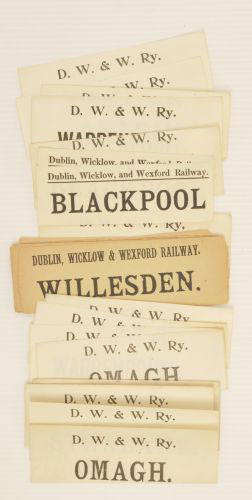 D. W. & W. Ry.
D. W. & W. Ry.
D. W. & W. Ry.
D. W. & W. Ry.
Dublin, Wicklow, and Wexford
Dublin, Wicklow, and Wexford Railway.
BLACKPOOL
D. W. & W. Ry.
DUBLIN, WICKLOW & WEXFORD RAILWAY.
WILLESDEN.
D. W. & W. Ry.
D. W. & W. Ry.
D. W. & W. Ry.
OMAGH
D. W. & W. Ry.
D. W. & W. Ry.
D. W. & W. Ry.
OMAGH.